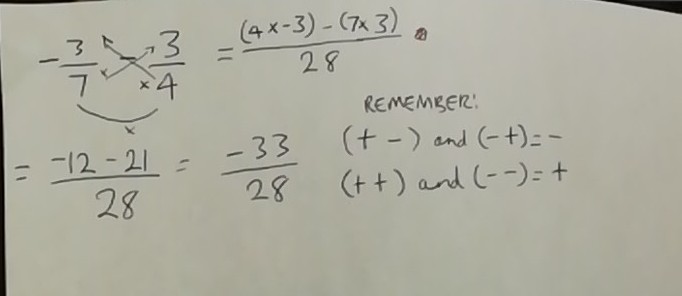 -3/7 - 3/4 = (4×-3) - (7×3)/28
REMEMBER:
= -12 - 21/28 = -33/28
(+ -) and (- +) = -
(+ +) and (- -) = +